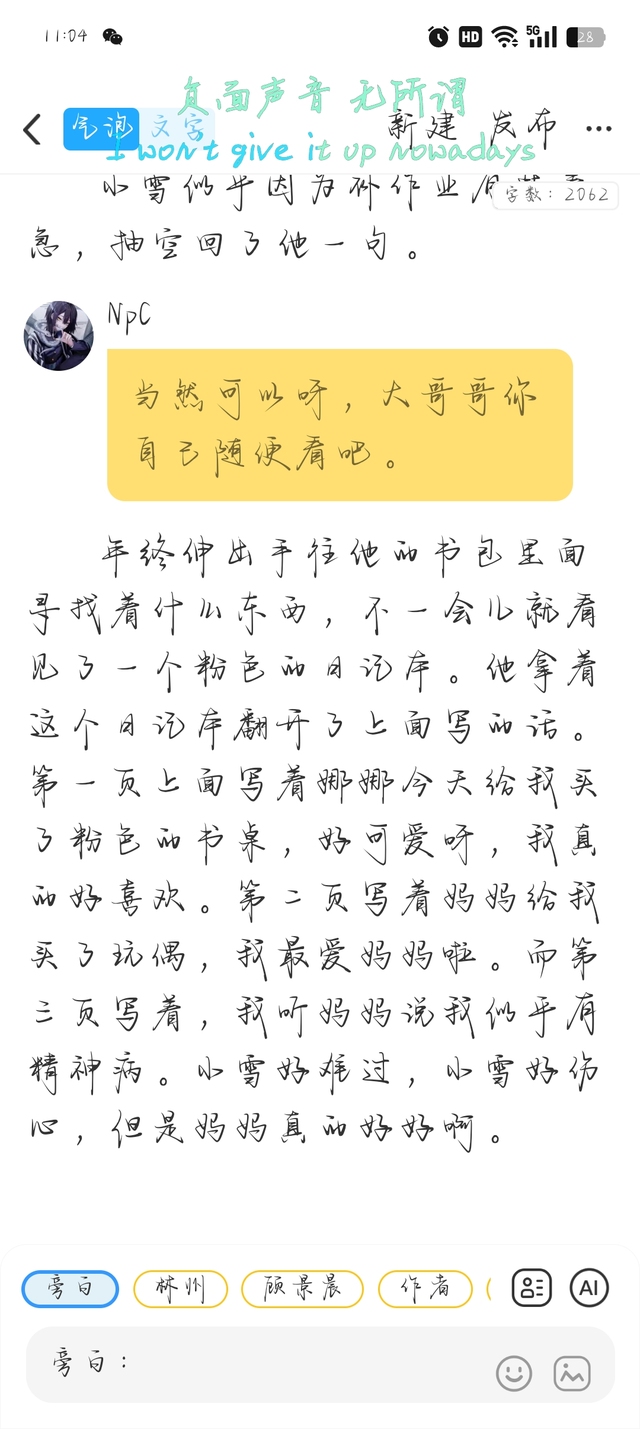 11:04
HD
5G
28
负面声音 无所谓
气泡 文字
新建 发布
I won't give it up nowadays
字数：2062
小雪似乎因为补作业
急，抽空回了他一句。
NpC
当然可以呀，大哥哥你
自己随便看吧。
年终伸出手往他的书包里面
寻找着什么东西，不一会儿就看
见了一个粉色的日记本。他拿着
这个日记本翻开了上面写的话。
第一页上面写着娜娜今天给我买
了粉色的书桌，好可爱呀，我真
的好喜欢。第二页写着妈妈给我
买了玩偶，我最爱妈妈啦。而第
三页写着，我听妈妈说我似乎有
精神病。小雪好难过，小雪好伤
心，但是妈妈真的好好啊。
旁白 林州 顾景晨 作者
AI
旁白：